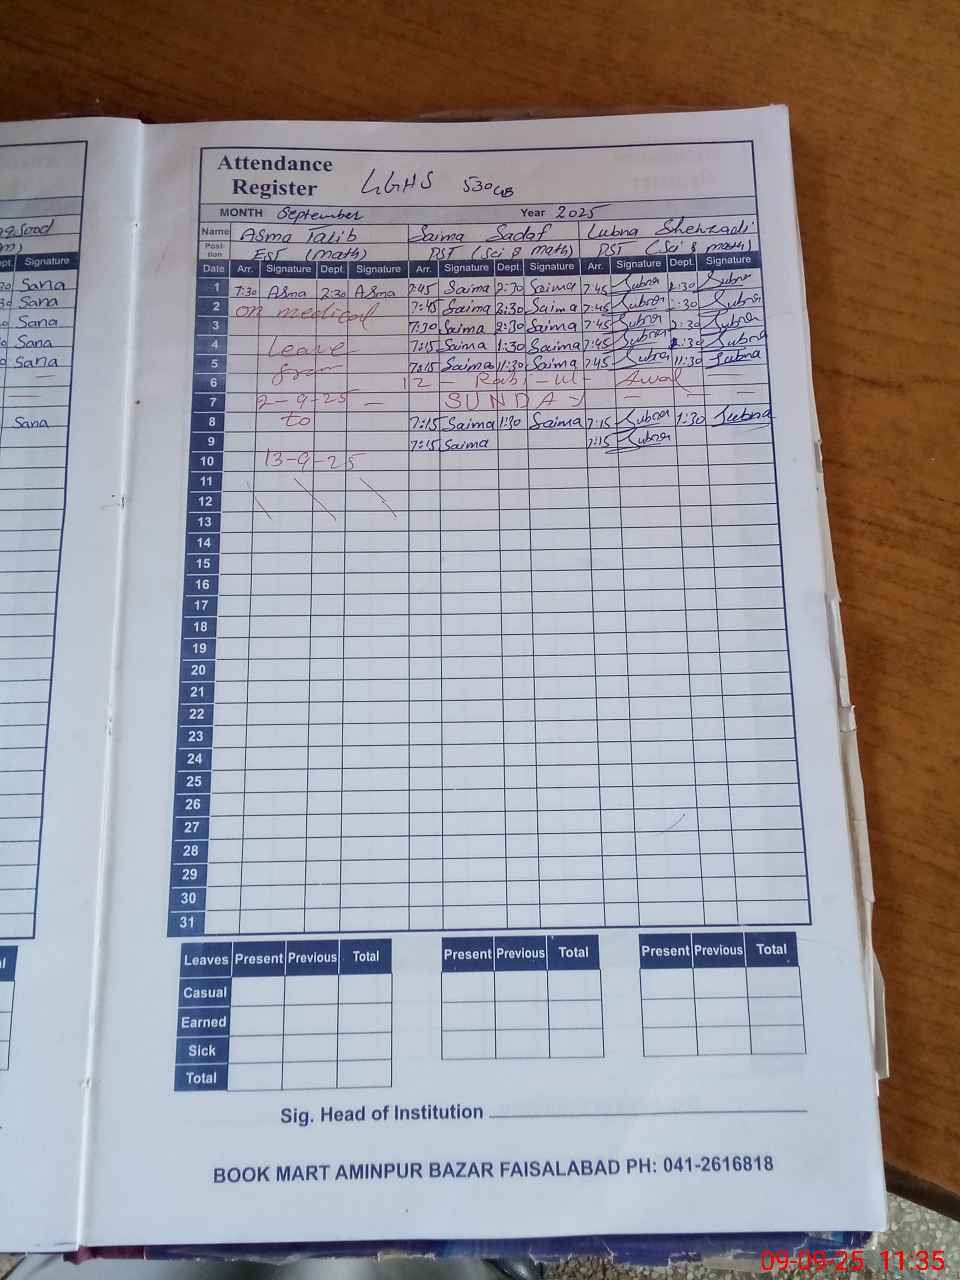 Attendance
Register GGHS 530 GB
MONTH September Year 2025
Name Asma Talib Saima Sadaf Lubna Shehzadi
Position EST (math) PST (Sci & math) PST (Sci & math)
Date Arr. Signature Dept. Signature Arr. Signature Dept. Signature Arr. Signature Dept. Signature
Dept. Signature
1 7:30 Asma 2:30 Asma 7:45 Saima 2:30 Saima 7:45 Lubna 2:30 Lubna
2 on medical 7:45 Saima 2:30 Saima 7:45 Lubna 2:30 Lubna
3 7:30 Saima 2:30 Saima 7:45 Lubna 2:30 Lubna
4 Leave 7:15 Saima 1:30 Saima 7:45 Lubna 1:30 Lubna
5 from 7:15 Saima 11:30 Saima 7:45 Lubna 11:30 Lubna
6 12 - Rabi - ul - Awal -
7 2-9-25 - SUNDAY - -
8 to 7:15 Saima 1:30 Saima 7:15 Lubna 1:30 Lubna
9 7:15 Saima 7:15 Lubna
10 13-9-25
11
12
13
14
15
16
17
18
19
20
21
22
23
24
25
26
27
28
29
30
31
Sana
Sana
Sana
Sana
Sana
Sana
Leaves Present Previous Total Present Previous Total Present Previous Total
Casual
Earned
Sick
Total
Sig. Head of Institution
BOOK MART AMINPUR BAZAR FAISALABAD PH: 041-2616818
09-09-25 11:35